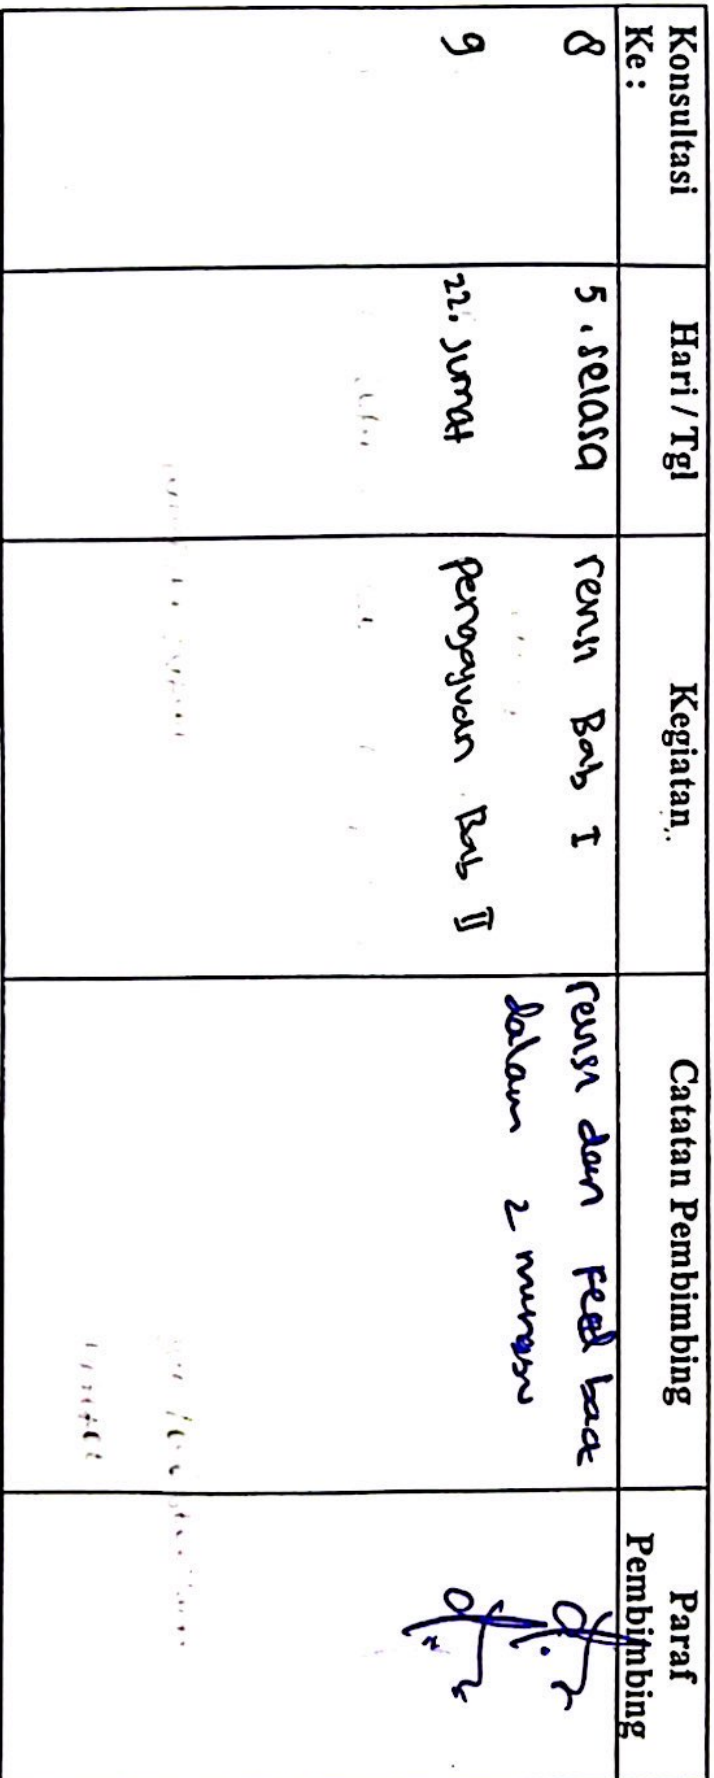 Konsultasi Ke :
Hari / Tgl
Kegiatan
Catatan Pembimbing
Paraf Pembimbing
8
5. selasa
revisi Bab I
revisi dan Feed back
dalam 2 minggu
9
22. Jumat
pengajuan Bab II